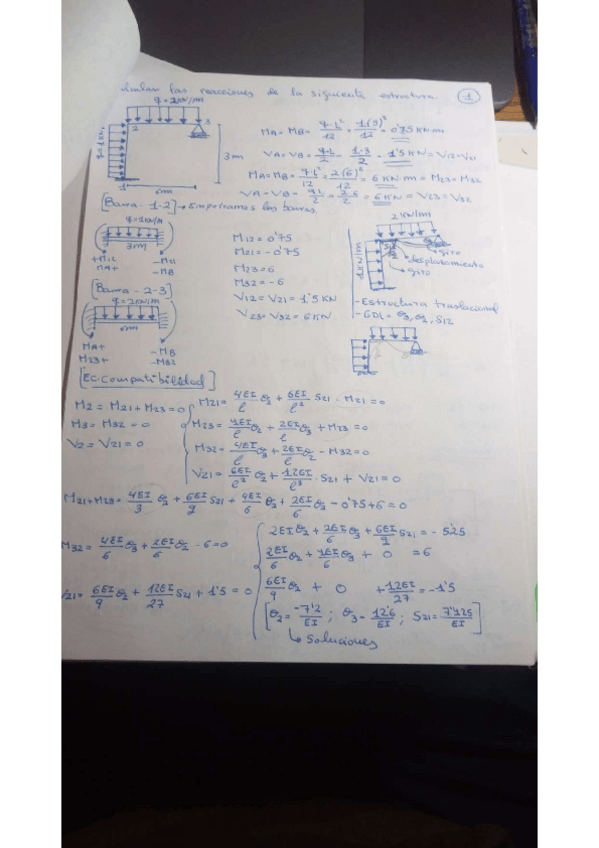 las reacciones de la siguiente estructura. 1
q = 2KN/m
2
3
3m
1
6m
MA = MB = q·l²/12 = 1·(3)²/12 = 0'75 KN·m
VA = VB = q·l/2 = 1·3/2 = 1'5 KN = V12 = V21
MA = MB = q·l²/12 = 2(6)²/12 = 6 KN·m = M23 = M32
VA = VB = ql/2 = 2·6/2 = 6 KN = V23 = V32
[Barra-1-2] → Empotramos las barras.
q = 1KN/m
3m
+M12
MA+
-M21
-MB
[Barra-2-3]
q = 2KN/m
6m
MA+
M23+
-MB
M12 = 0'75
M21 = -0'75
M23 = 6
M32 = -6
V12 = V21 = 1'5 KN
V23 = V32 = 6 KN
2 KN/m
1KN/m
giro
desplazamiento
giro
- Estructura traslacional
- GDL = θ3, θ2, S12
[EC. Compatibilidad]
M2 = M21 + M23 = 0
M3 = M32 = 0
V2 = V21 = 0
M21 = 4EI/l θ2 + 6EI/l² S21 - M21 = 0
M23 = 4EI/l θ2 + 2EI/l θ3 + M23 = 0
M32 = 4EI/l θ3 + 2EI/l θ2 - M32 = 0
V21 = 6EI/l² θ2 + 12EI/l³ · S21 + V21 = 0
M21 + M23 = 4EI/3 θ2 + 6EI/9 S21 + 4EI/6 θ2 + 2EI/6 θ3 - 0'75 + 6 = 0
M32 = 4EI/6 θ3 + 2EI/6 θ2 - 6 = 0
V21 = 6EI/9 θ2 + 12EI/27 S21 + 1'5 = 0
2EI θ2 + 2EI/6 θ3 + 6EI/9 S21 = -5'25
2EI/6 θ2 + 4EI/6 θ3 + 0 = 6
6EI/9 θ2 + 0 + 12EI/27 = -1'5
[θ2 = -7'2/EI ; θ3 = 12'6/EI ; S21 = 7'425/EI]
↳ Soluciones